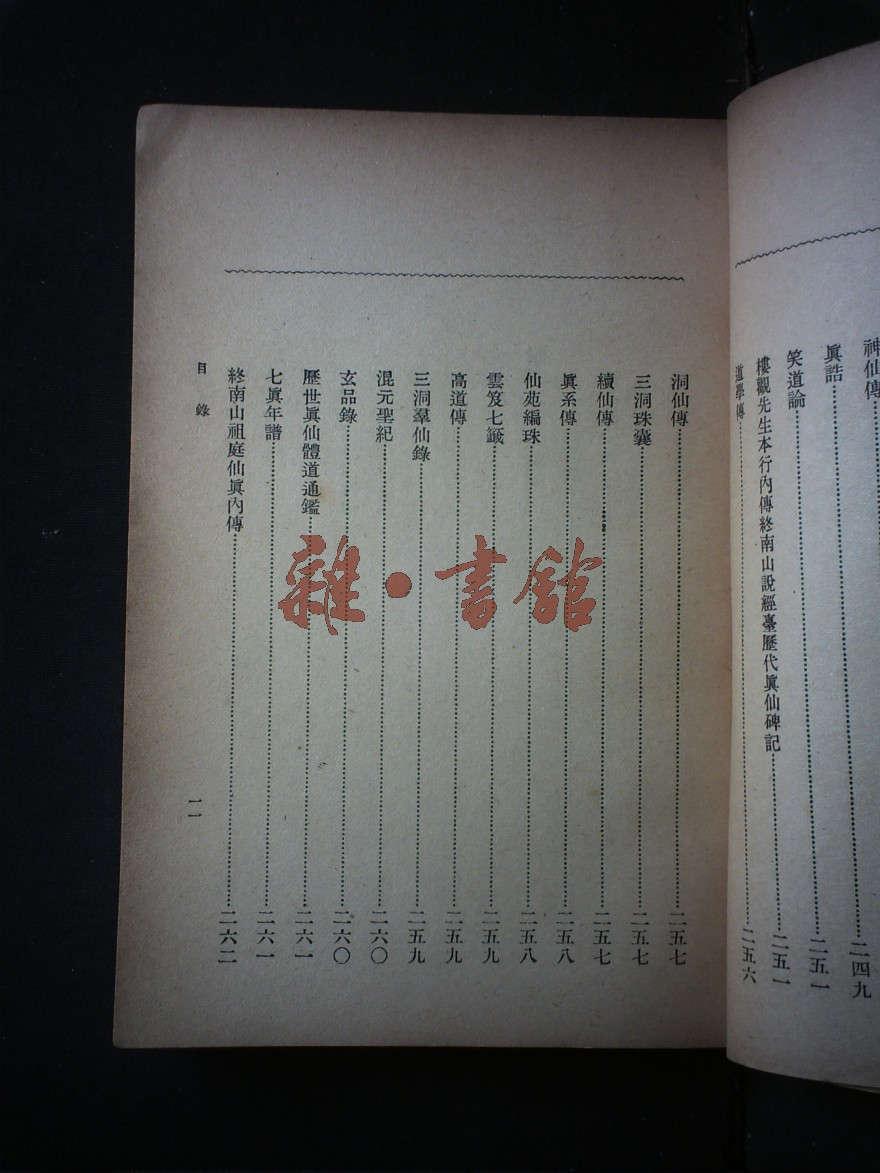 神仙傳
眞誥……二四九
笑道論……二五一
樓觀先生本行內傳終南山說經臺歷代眞仙碑記……二五一
道學傳……二五六
洞仙傳……二五七
三洞珠囊……二五七
續仙傳……二五七
眞系傳……二五八
仙苑編珠……二五八
雲笈七籤……二五九
高道傳……二五九
三洞羣仙錄……二五九
混元聖紀……二六〇
玄品錄……二六〇
歷世眞仙體道通鑑……二六一
七眞年譜……二六一
終南山祖庭仙眞內傳……二六二
目錄
一一
雜·書館